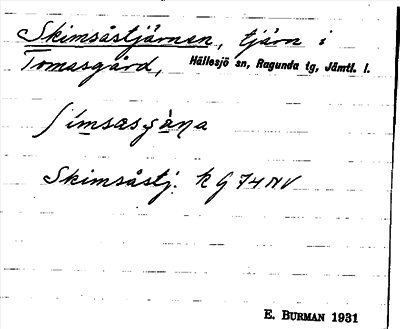 Skimsåstjärnen, tjärn i
Tomasgård, Hällesjö sn, Ragunda tg, Jämtl. l.
Skimsåstj. k G 74 NV
E. BURMAN 1931